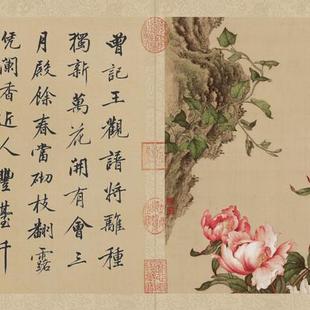 曾記王觀譜將離種
獨新萬花開有會三
月殿餘春當砌枝翻露
凭闌香近人豐臺千